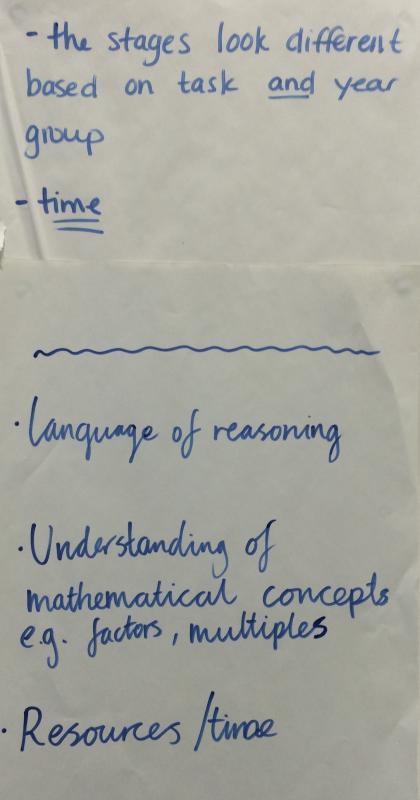 - the stages look different
based on task and year
group
- time
· Language of reasoning
· Understanding of
mathematical concepts
e.g. factors, multiples
· Resources /time